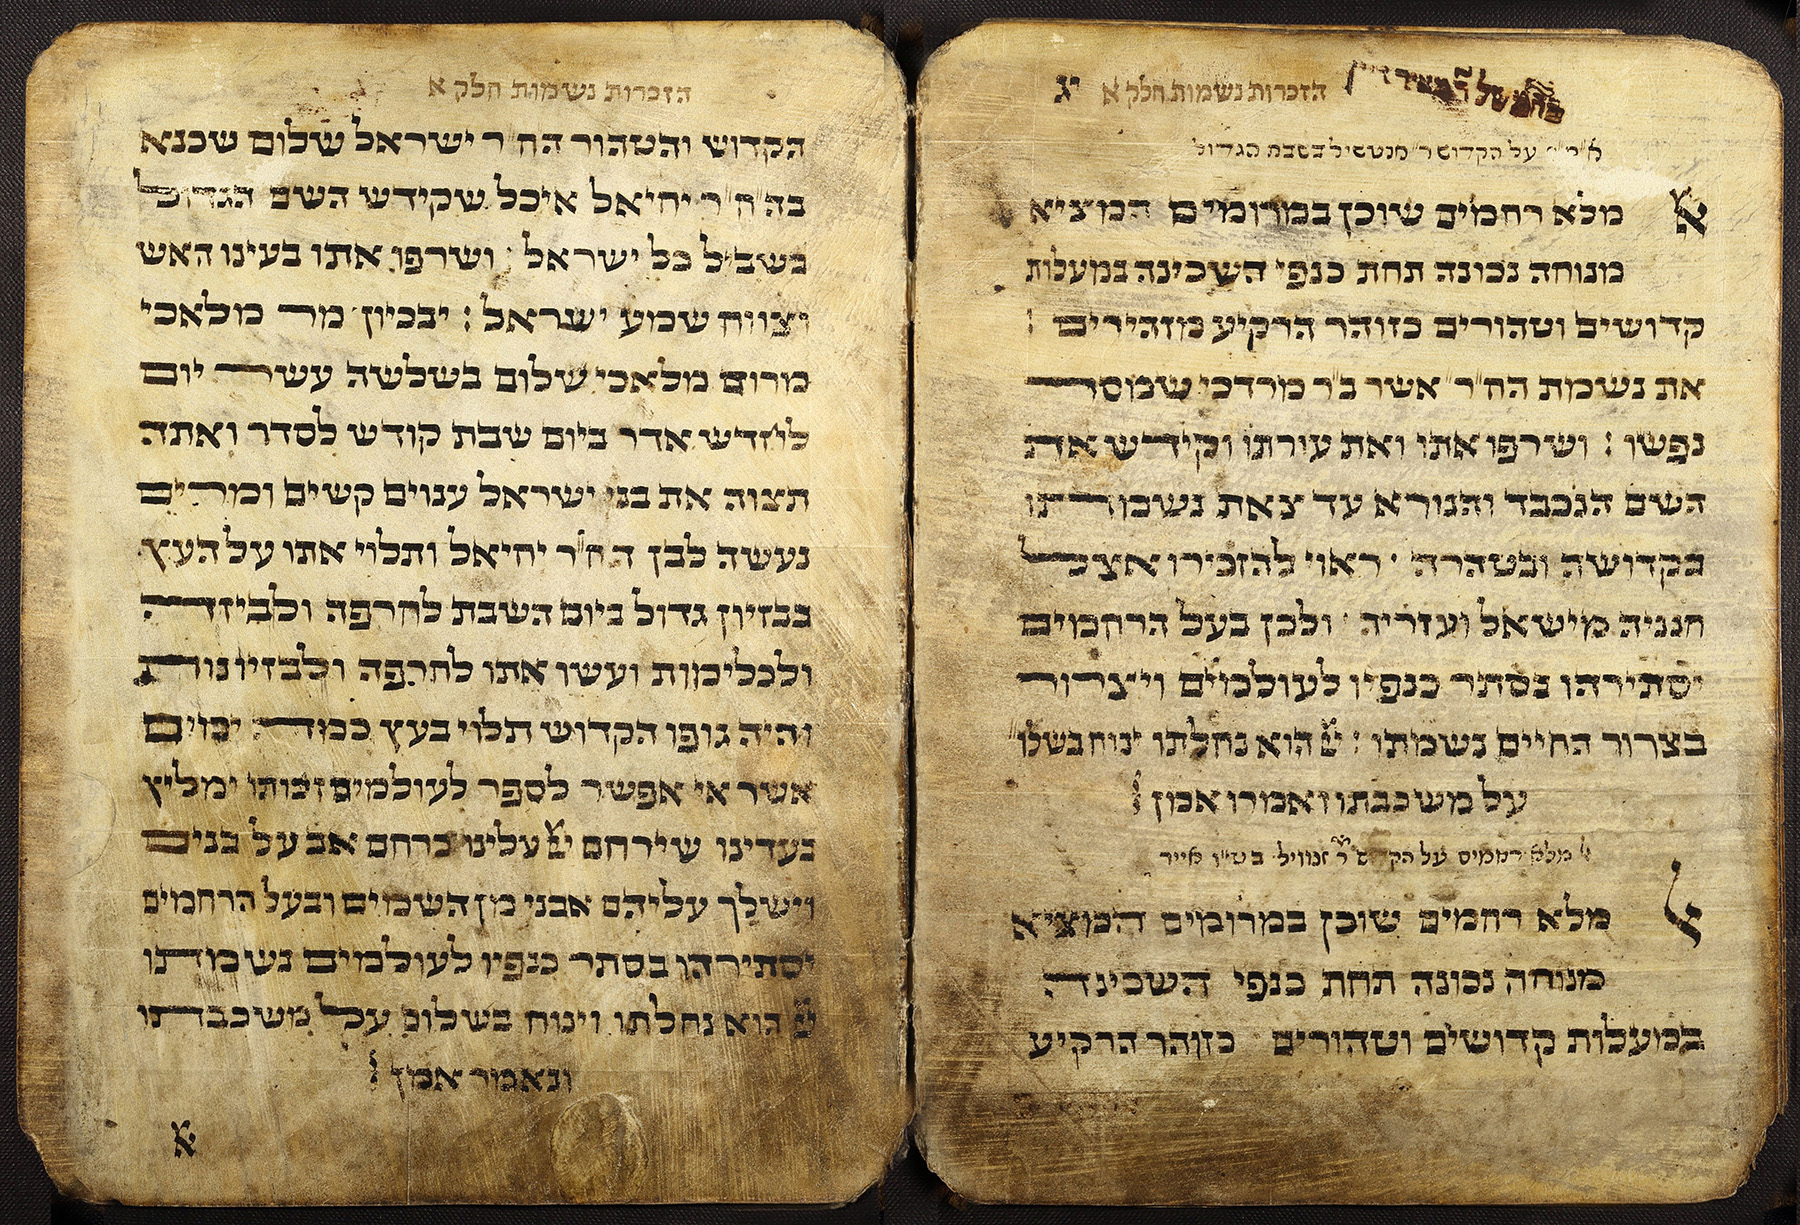 הזכרות נשמות חלק א יג
על הקדוש ר' מנטשיל בשבת הגדול
א מלא רחמים שוכן במרומים המציא
מנוחה נכונה תחת כנפי השכינה במעלות
קדושים וטהורים כזוהר הרקיע מזהירים :
את נשמת הח"ר אשר ב"ר מרדכי שמסר
נפשו : ושרפו אתו ואת עורתו וקידש את
השם הנכבד והנורא עד צאת נשמתו
בקדושה ובטהרה · ראוי להזכירו אצל
חנניה מישאל ועזריה · ולכן בעל הרחמים
יסתירהו בסתר כנפיו לעולמים ויצרור
בצרור החיים נשמתו : יי הוא נחלתו ינוח בשלו'
על משכבתו ואמרו אמן :
מלא רחמים על הקדוש ר' זנוויל אייר
ל מלא רחמים שוכן במרומים המוציא
מנוחה נכונה תחת כנפי השכינה
במעלות קדושים וטהורים כזוהר הרקיע
הזכרות נשמות חלק א
הקדוש והטהור הח"ר ישראל שלום שכנא
בהח"ר יחיאל איכל שקידש השם הגדול
בשביל כל ישראל : ושרפו אתו בעינו האש
וצווח שמע ישראל : יבכיון מר מלאכי
מרום מלאכי שלום בשלשה עשר יום
לחדש אדר ביום שבת קודש לסדר ואתה
תצוה את בני ישראל ענוים קשים ומרים
נעשה לבן הח"ר יחיאל ותלוי אתו על העץ
בבזיון גדול ביום השבת לחרפה ולביזה
ולכלימות ועשו אתו לחרפה ולבזיונות
והיה גופו הקדוש תלוי בעץ כמה ימים
אשר אי אפשר לספר לעולמים זכותו ימליץ
בעדינו שירחם יי עלינו כרחם אב על בנים
וישלך עליהם אבני מן השמים ובעל הרחמים
יסתירהו בסתר כנפיו לעולמים נשמתו
יי הוא נחלתו וינוח בשלום על משכבתו
ונאמר אמן :
א